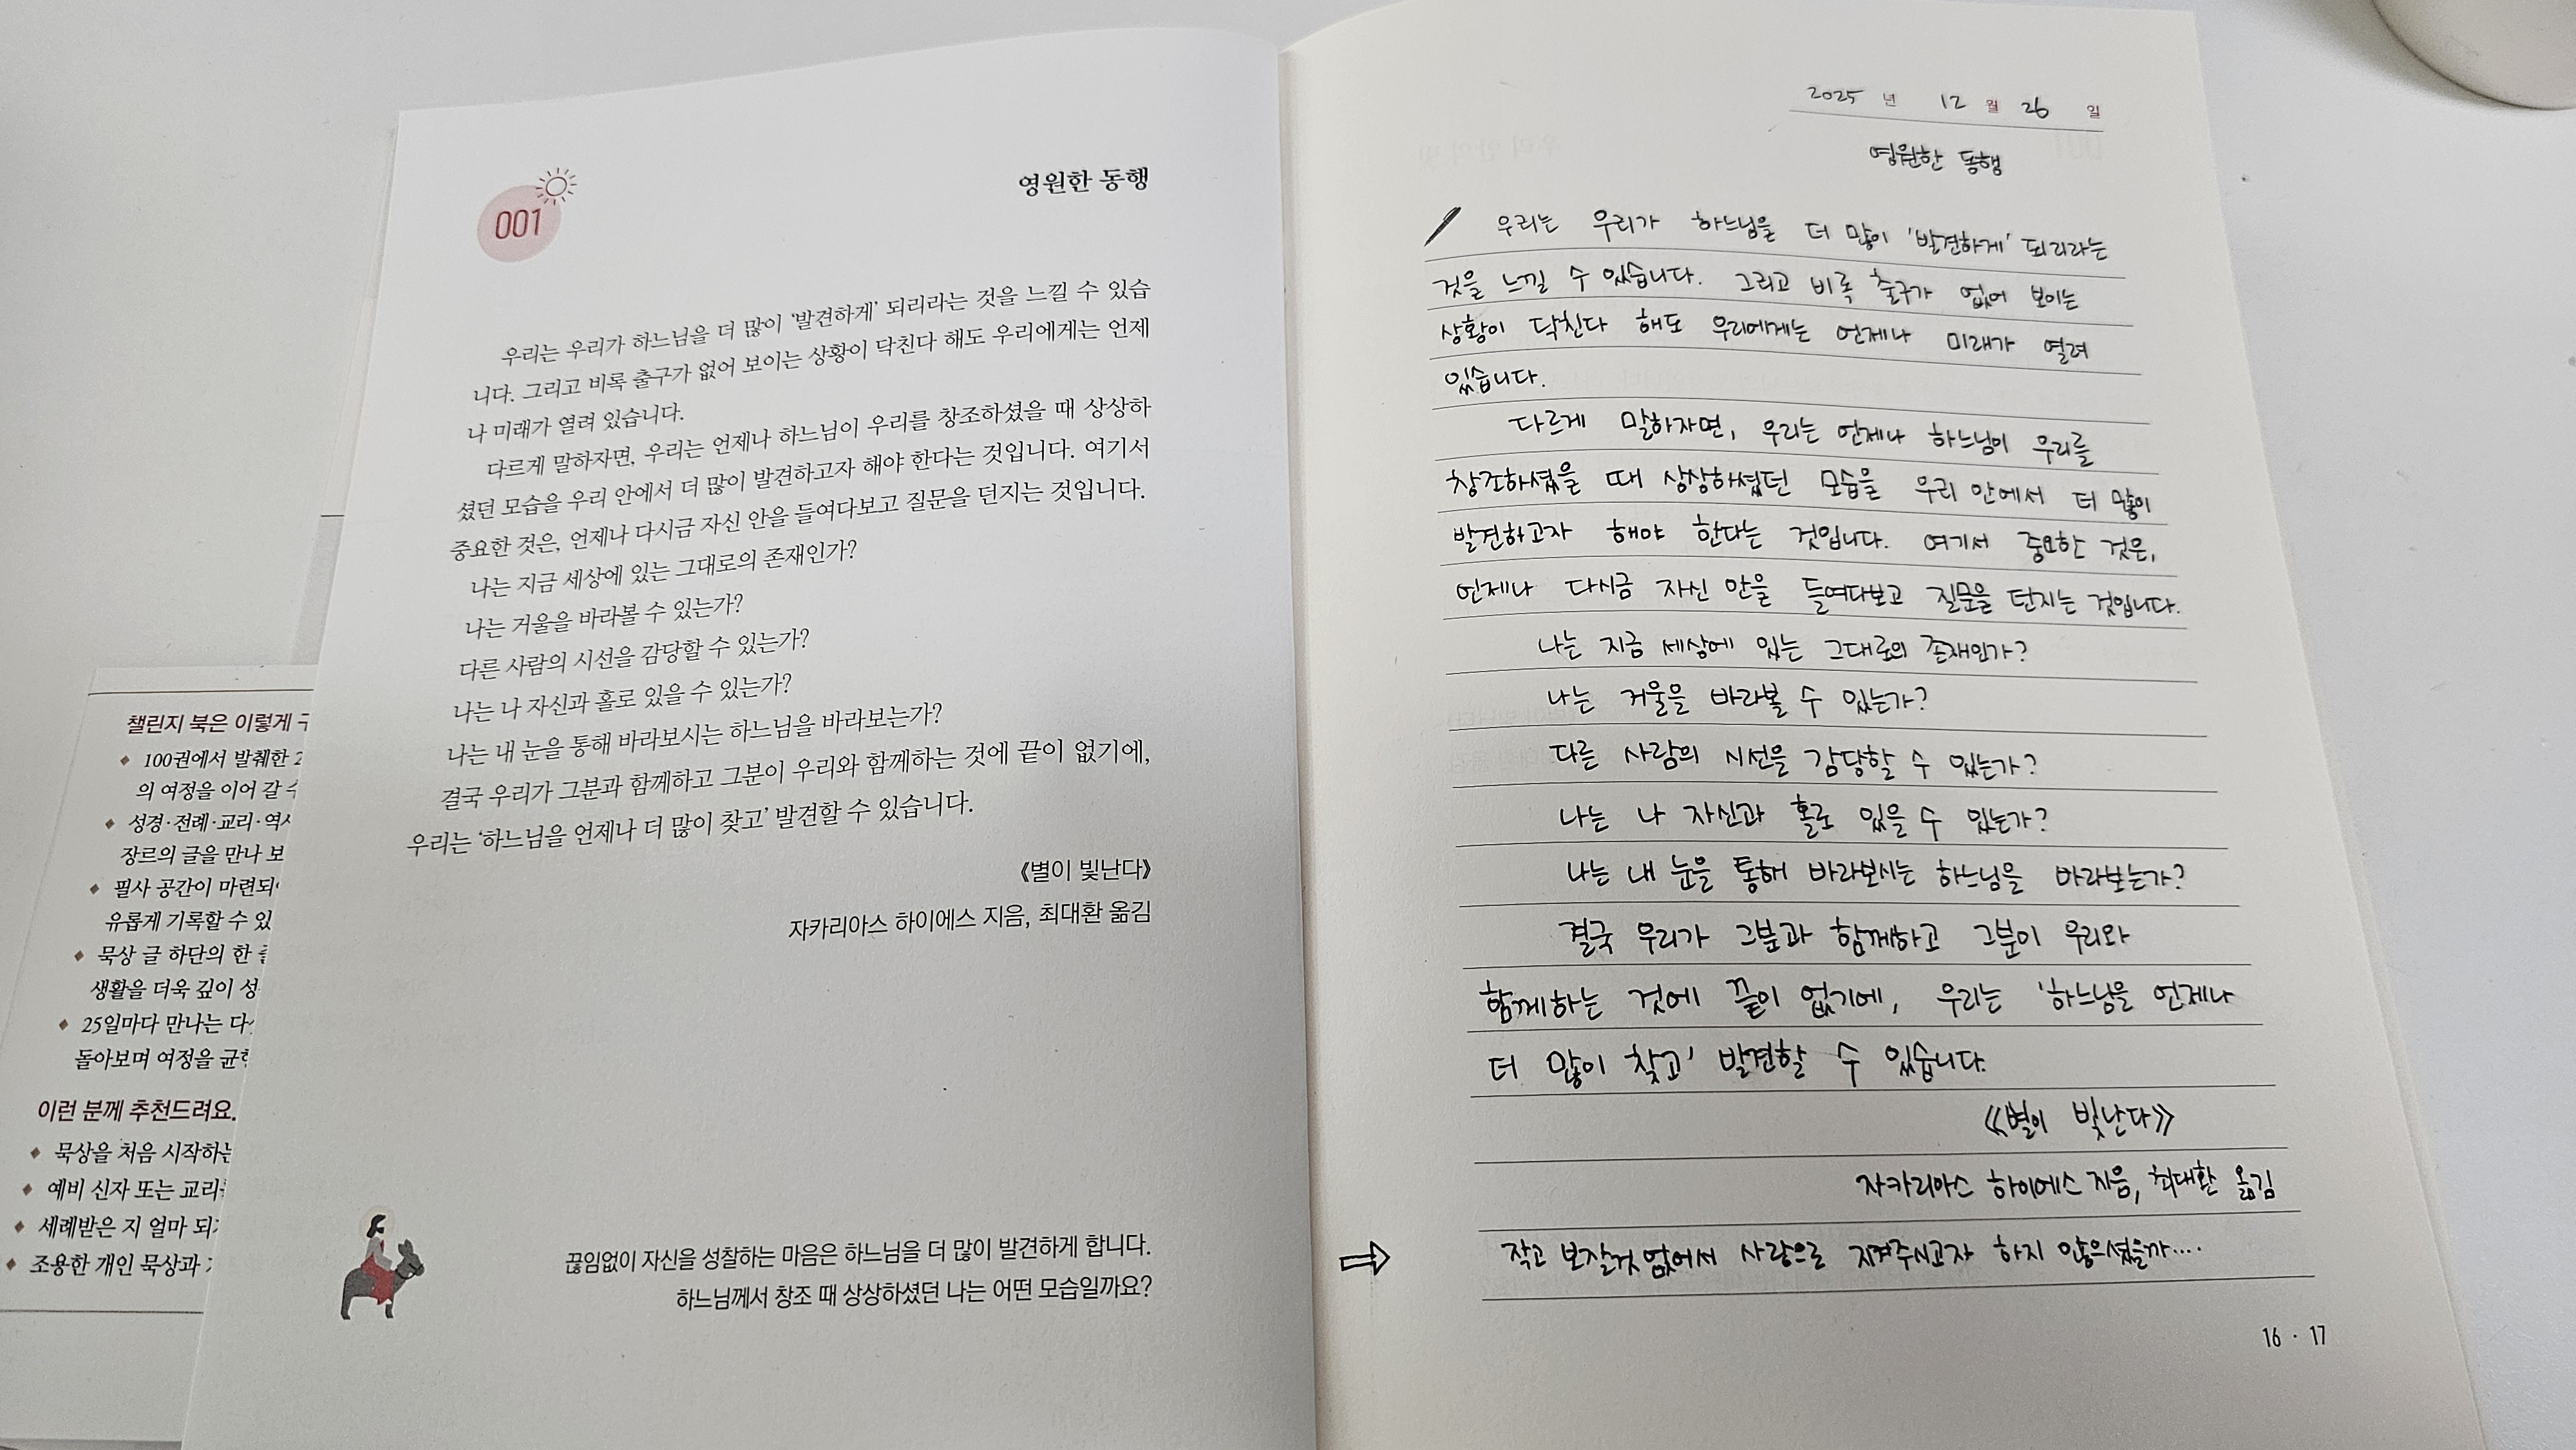 001
영원한 동행
우리는 우리가 하느님을 더 많이 '발견하게' 되리라는 것을 느낄 수 있습
니다. 그리고 비록 출구가 없어 보이는 상황이 닥친다 해도 우리에게는 언제
나 미래가 열려 있습니다.
다르게 말하자면, 우리는 언제나 하느님이 우리를 창조하셨을 때 상상하
셨던 모습을 우리 안에서 더 많이 발견하고자 해야 한다는 것입니다. 여기서
중요한 것은, 언제나 다시금 자신 안을 들여다보고 질문을 던지는 것입니다.
나는 지금 세상에 있는 그대로의 존재인가?
나는 거울을 바라볼 수 있는가?
다른 사람의 시선을 감당할 수 있는가?
나는 나 자신과 홀로 있을 수 있는가?
나는 내 눈을 통해 바라보시는 하느님을 바라보는가?
결국 우리가 그분과 함께하고 그분이 우리와 함께하는 것에 끝이 없기에,
우리는 '하느님을 언제나 더 많이 찾고' 발견할 수 있습니다.
《별이 빛난다》
자카리아스 하이에스 지음, 최대환 옮김
끊임없이 자신을 성찰하는 마음은 하느님을 더 많이 발견하게 합니다.
하느님께서 창조 때 상상하셨던 나는 어떤 모습일까요?
챌린지 북은 이렇게
100권에서 발췌한 2
의 여정을 이어 갈 수
성경·전례·교리·역사
장르의 글을 만나 보
필사 공간이 마련되
유롭게 기록할 수 있
묵상 글 하단의 한
생활을 더욱 깊이 성
25일마다 만나는 다
돌아보며 여정을 균
이런 분께 추천드려요.
묵상을 처음 시작하는
예비 신자 또는 교리
세례받은 지 얼마 되
조용한 개인 묵상과
2025 년 12 월 26 일
영원한 동행
우리는 우리가 하느님을 더 많이 '발견하게' 되리라는
것을 느낄 수 있습니다. 그리고 비록 출구가 없어 보이는
상황이 닥친다 해도 우리에게는 언제나 미래가 열려
있습니다.
다르게 말하자면, 우리는 언제나 하느님이 우리를
창조하셨을 때 상상하셨던 모습을 우리 안에서 더 많이
발견하고자 해야 한다는 것입니다. 여기서 중요한 것은,
언제나 다시금 자신 안을 들여다보고 질문을 던지는 것입니다.
나는 지금 세상에 있는 그대로의 존재인가?
나는 거울을 바라볼 수 있는가?
다른 사람의 시선을 감당할 수 있는가?
나는 나 자신과 홀로 있을 수 있는가?
나는 내 눈을 통해 바라보시는 하느님을 바라보는가?
결국 우리가 그분과 함께하고 그분이 우리와
함께하는 것에 끝이 없기에, 우리는 '하느님을 언제나
더 많이 찾고' 발견할 수 있습니다.
《별이 빛난다》
자카리아스 하이에스 지음, 최대환 옮김
작고 보잘것 없어서 사랑으로 지켜주시고자 하지 않으셨을까....
16 · 17